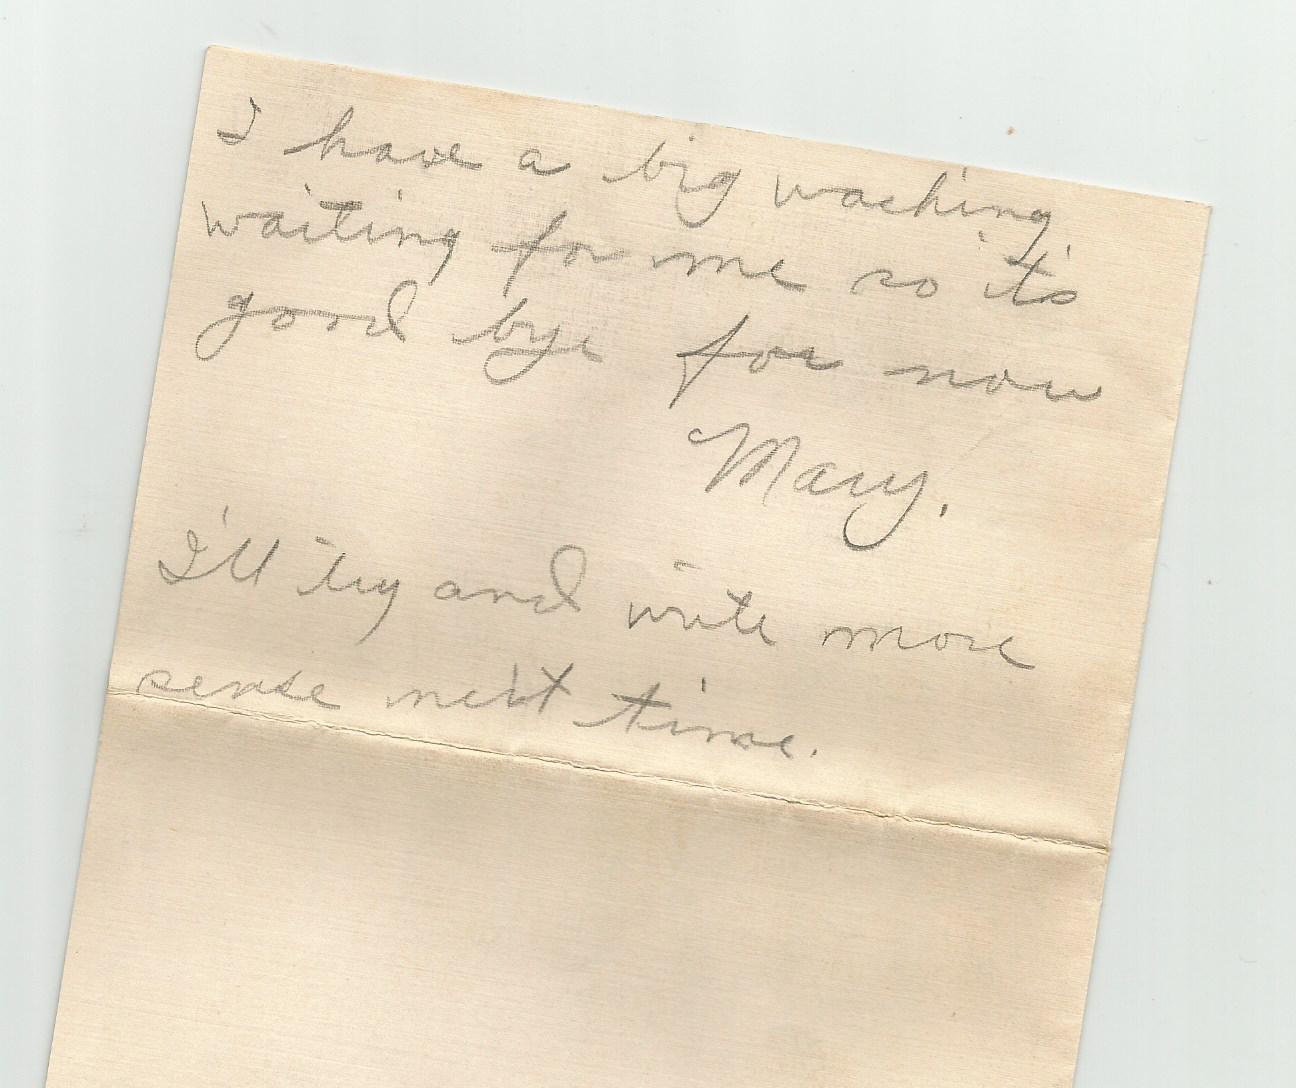 I have a big washing
waiting for me so it's
good bye for now
Mary.
I'll try and write more
sense next time.